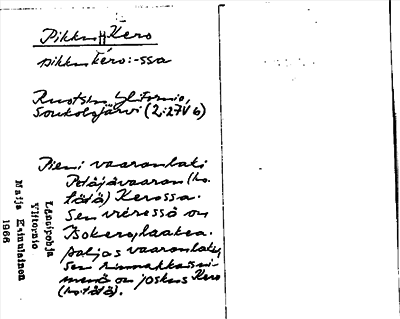 Pikku Kero
pikku kero: -ssa
Ruotsin Ylitornio,
Soukolojärvi (2:27V6)
Pieni vaaranlaki
Pitäjävaaran (ks.
tätä) Kerossa.
Sen vieressä on
Isokero, laakea.
paljas vaaranlaki,
Sen rinnakkaisni-
menä on joskus Kero
(ks. tätä).
Länsipohja
Ylitornio
Maija Kainulainen
1966